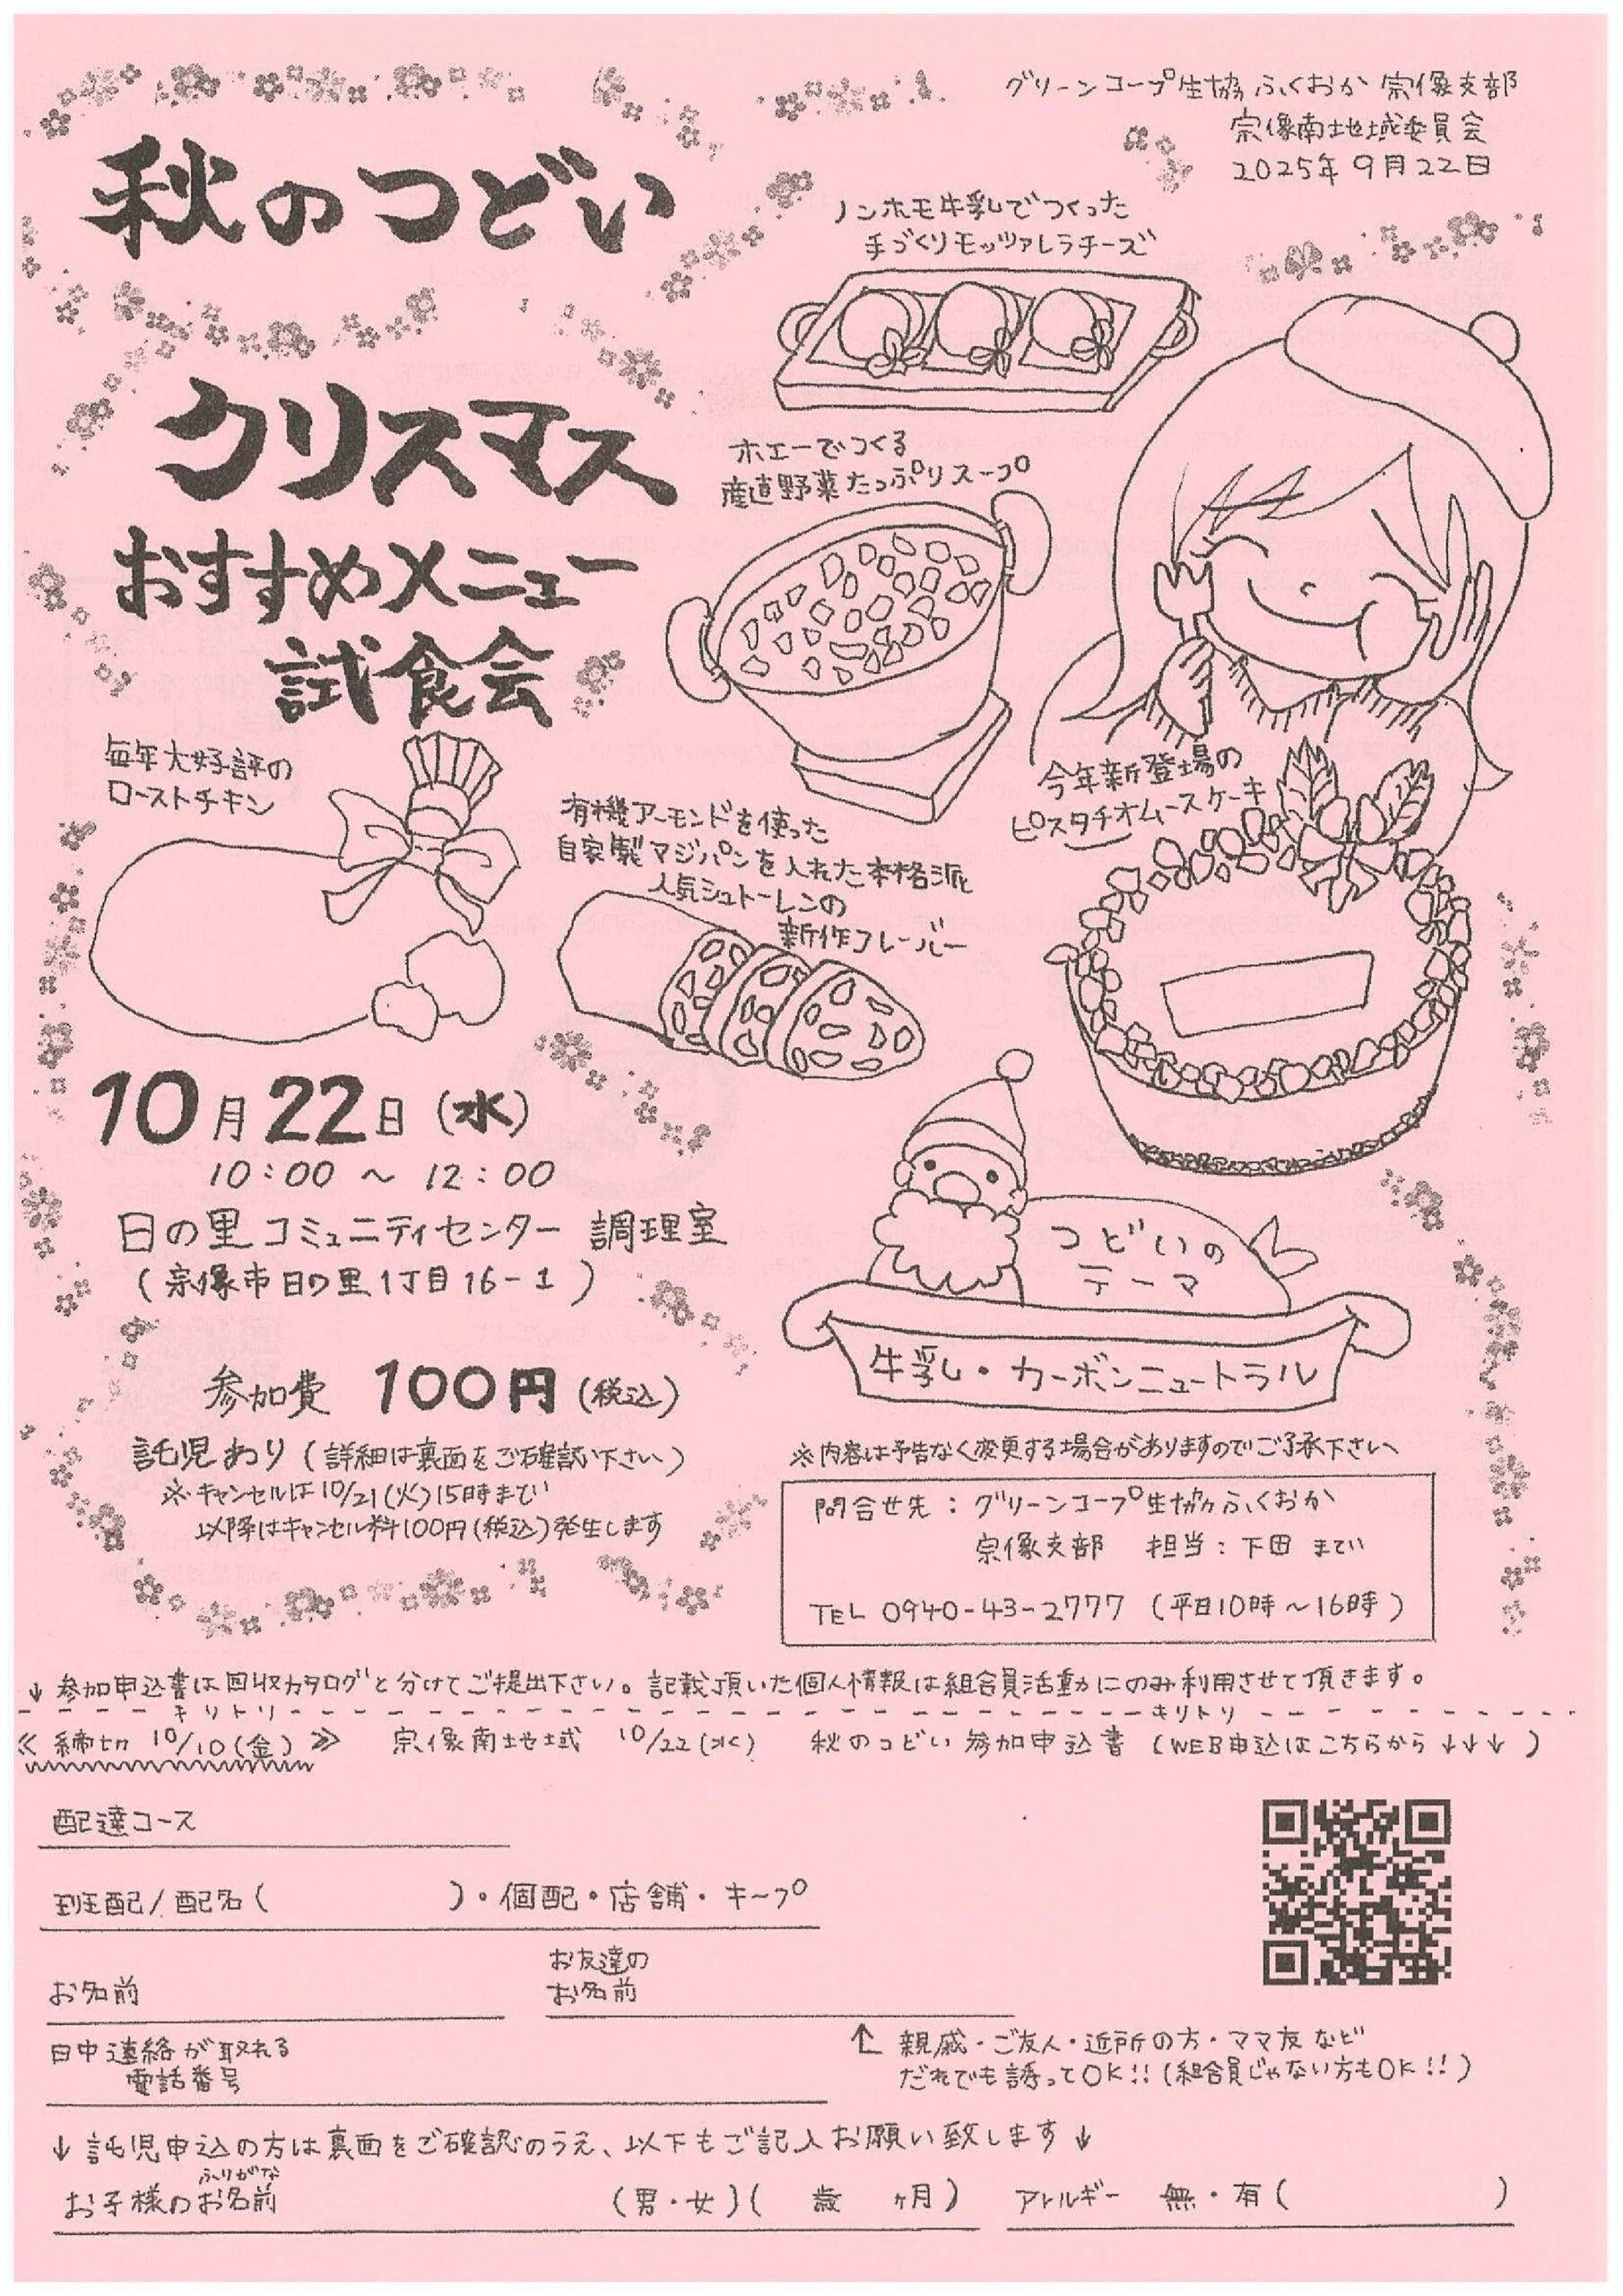 グリーンコープ生協ふくおか 宗像支部
宗像南地域委員会
2025年9月22日
秋のつどい
クリスマス
おすすめメニュー
試食会
ノンホモ牛乳でつくった
手づくりモッツァレラチーズ
ホエーでつくる
産直野菜たっぷりスープ
毎年大好評の
ローストチキン
有機アーモンドを使った
自家製マジパンを入れた本格派
人気シュトーレンの
新作フレーバー
今年新登場の
ピスタチオムースケーキ
10月22日(水)
10:00 〜 12:00
日の里コミュニティセンター 調理室
(宗像市日の里1丁目16-1)
参加費 100円(税込)
託児あり(詳細は裏面をご確認下さい)
※キャンセルは10/21(火)15時まで
以降はキャンセル料100円(税込)発生します
つどいの
テーマ
牛乳・カーボンニュートラル
※内容は予告なく変更する場合がありますのでご了承下さい
問合せ先:グリーンコープ生協ふくおか
宗像支部 担当:下田 まで
TEL 0940-43-2777 (平日10時〜16時)
↓参加申込書は回収カタログと分けてご提出下さい。記載頂いた個人情報は組合員活動にのみ利用させて頂きます。
キリトリ キリトリ
≪締切 10/10(金)≫ 宗像南地域 10/22(水) 秋のつどい参加申込書 (WEB申込はこちらから↓↓↓)
配達コース
班配/配名( )・個配・店舗・キープ
お名前
お友達の
お名前
日中連絡が取れる
電話番号
↑ 親戚・ご友人・近所の方・ママ友など
だれでも誘ってOK!!(組合員じゃない方もOK!!)
↓託児申込の方は裏面をご確認のうえ、以下もご記入お願い致します↓
ふりがな
お子様のお名前 (男・女)( 歳 ヶ月) アレルギー 無・有( )